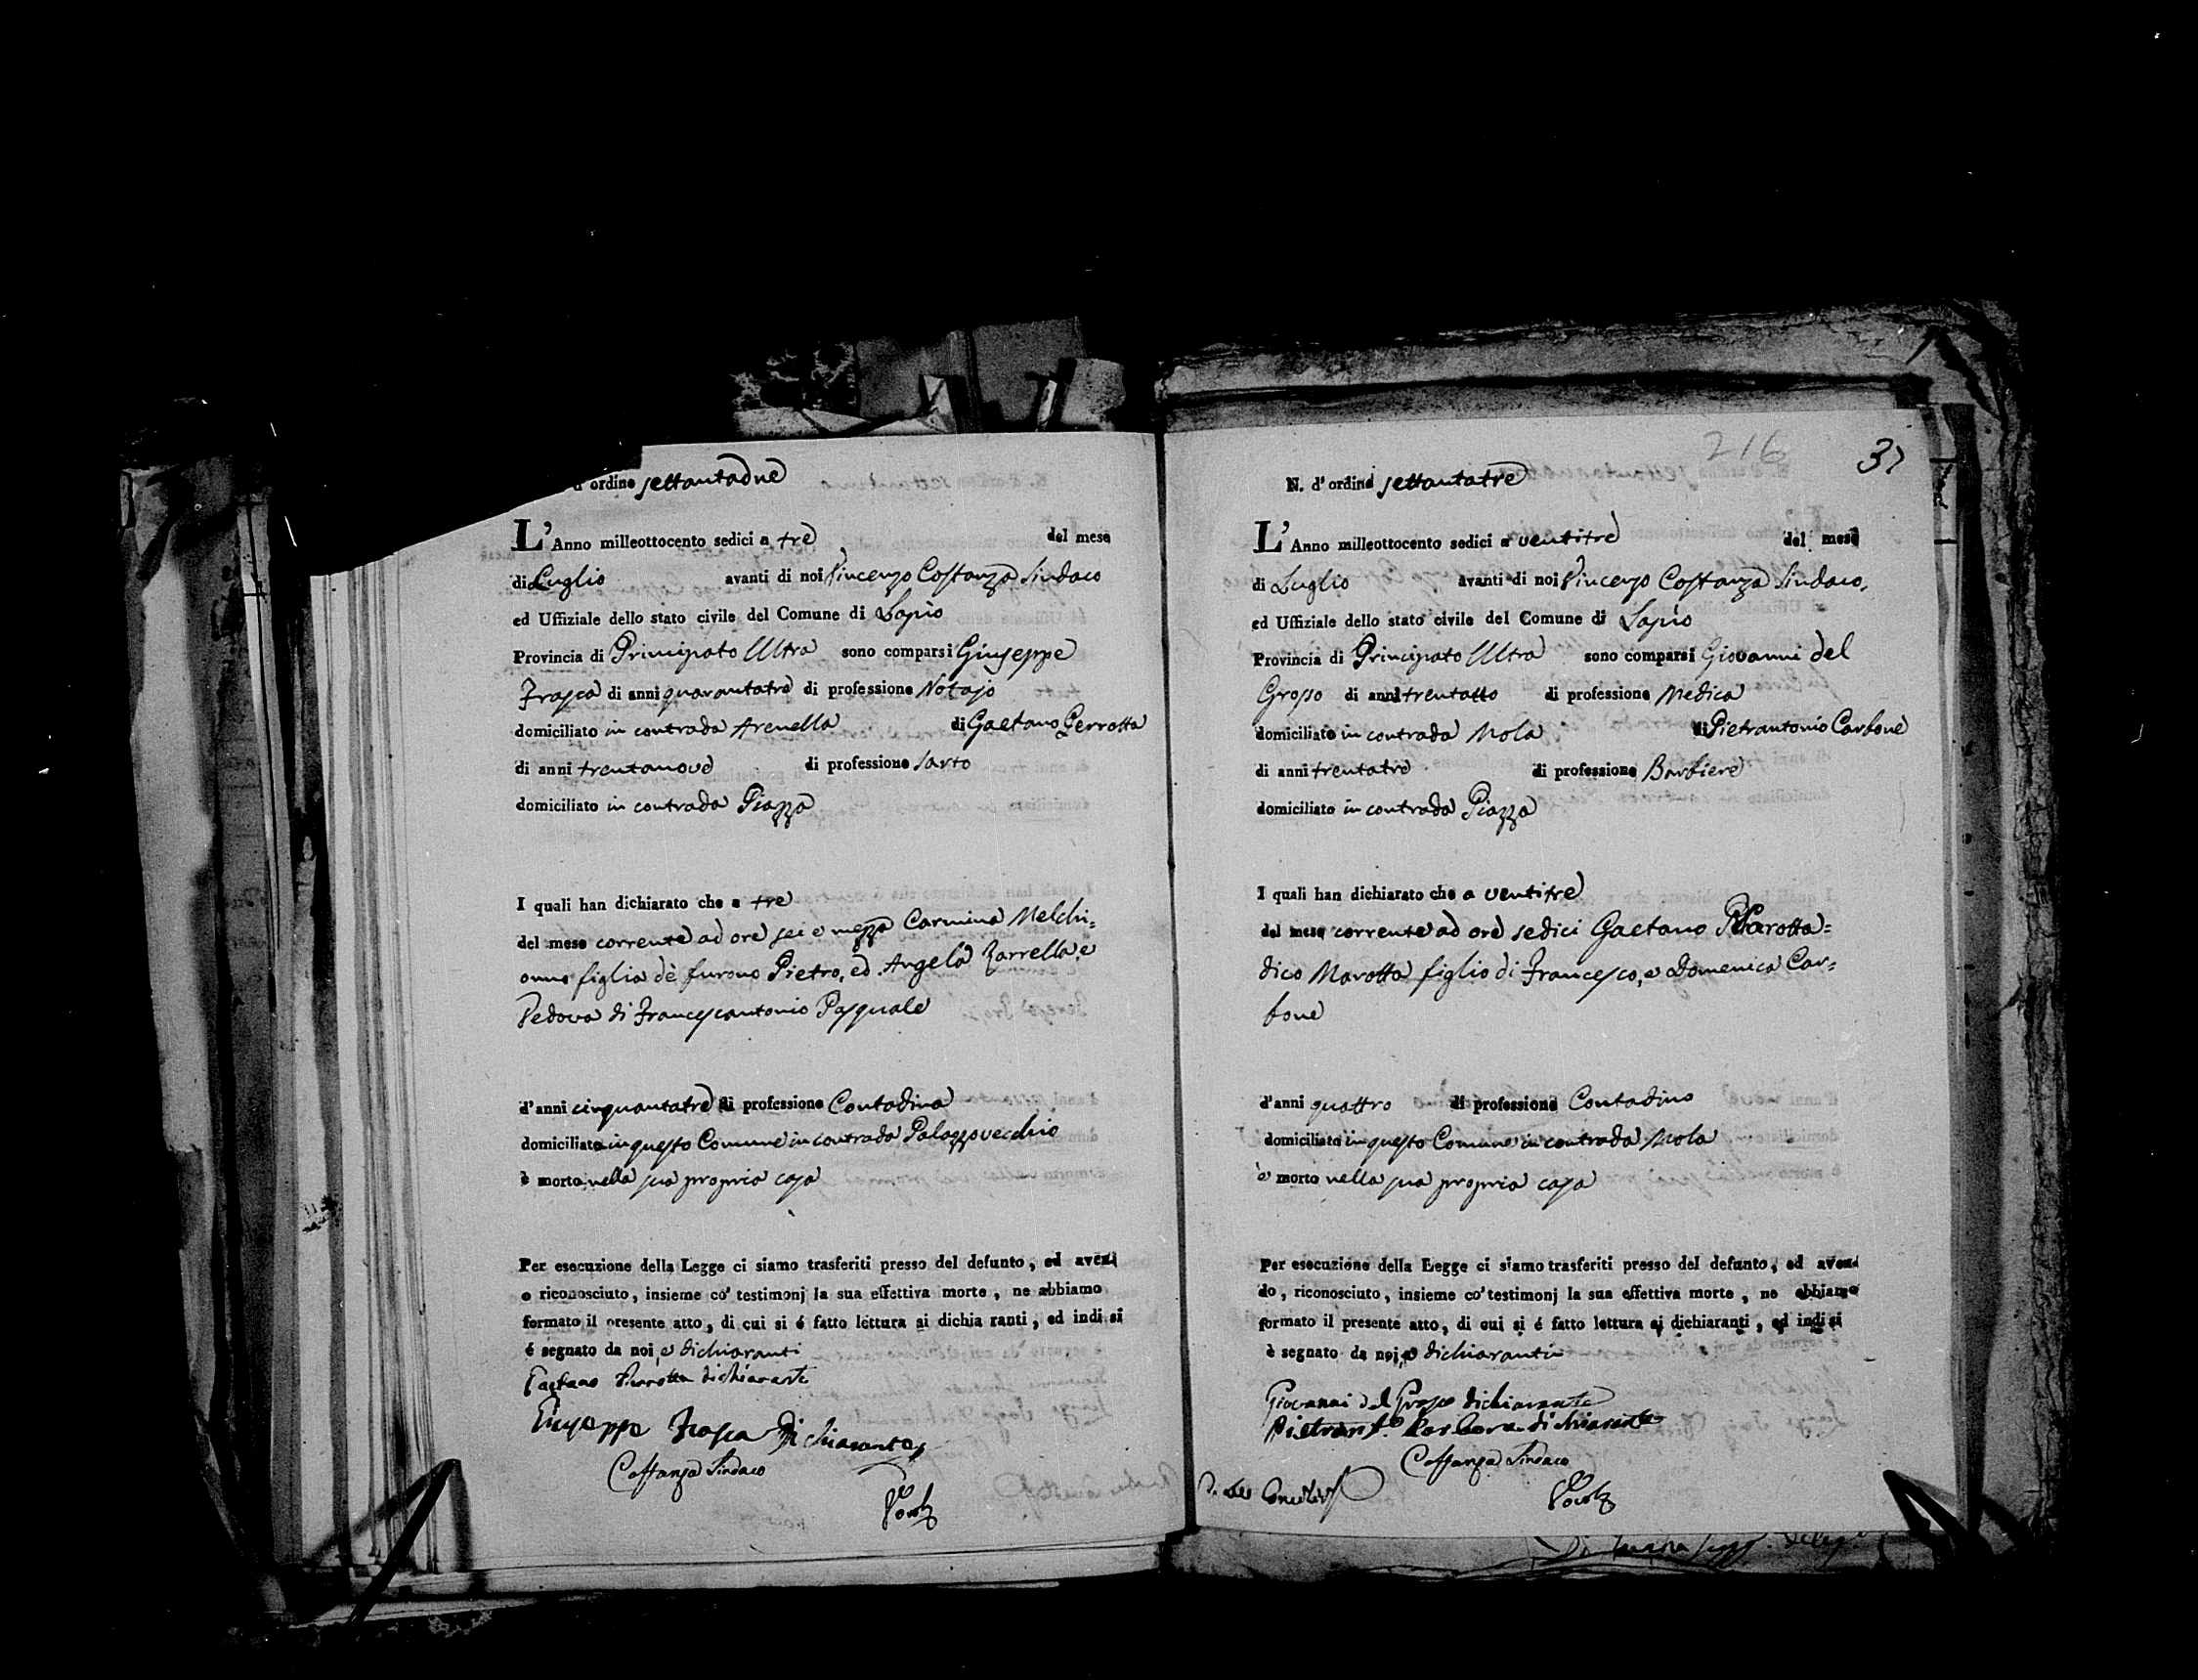 d' ordine settantadue
L' Anno milleottocento sedici a tre del mese
di Luglio avanti di noi Vincenzo Costanza Sindaco
ed Uffiziale dello stato civile del Comune di Lapio
Provincia di Principato Ultra sono comparsi Giuseppe
Frasca di anni quarantatre di professione Notajo
domiciliato in contrada Arenella di Gaetano Perrotta
di anni trentanove di professione Sarto
domiciliato in contrada Piazza
I quali han dichiarato che a tre
del mese corrente ad ore sei e mezza Carmina Melchi=
onno figlia dè furono Pietro, ed Angela Zarrella, e
Vedova di Francescantonio Pasquale
d'anni cinquantatre di professione Contadina
domiciliato in questo Comune in contrada Palazzovecchio
è morto nella sua propria casa
Per esecuzione della Legge ci siamo trasferiti presso del defunto, ed aven
o riconosciuto, insieme co' testimonj la sua effettiva morte, ne abbiamo
formato il presente atto, di cui si é fatto lettura ai dichia ranti, ed indi si
é segnato da noi, e dichiaranti
Gaetano Perrotta dichiarante
Giuseppe Frasca Dichiarante
Costanza Sindaco
216
37
N. d' ordine settantatre
L' Anno milleottocento sedici a ventitre del mese
di Luglio avanti di noi Vincenzo Costanza Sindaco,
ed Uffiziale dello stato civile del Comune di Lapio
Provincia di Principato Ultra sono comparsi Giovanni del
Grosso di anni trentotto di professione Medico
domiciliato in contrada Mola di Pietrantonio Carbone
di anni trentatre di professione Barbiere
domiciliato in contrada Piazza
I quali han dichiarato che a ventitre
del mese corrente ad ore sedici Gaetano Marotta=
dico Marotta figlio di Francesco, e Domenica Car=
bone
d'anni quattro di professione Contadino
domiciliato in questo Comune in contrada Mola
è morto nella sua propria casa
Per esecuzione della Legge ci siamo trasferiti presso del defunto, ed aven
do, riconosciuto, insieme co' testimonj la sua effettiva morte, ne abbiamo
formato il presente atto, di cui si é fatto lettura ai dichiaranti, ed indi si
è segnato da noi, e dichiaranti
Giovanni del Grosso dichiarante
Pietrant.o Carbone dichiarante
Costanza Sindaco